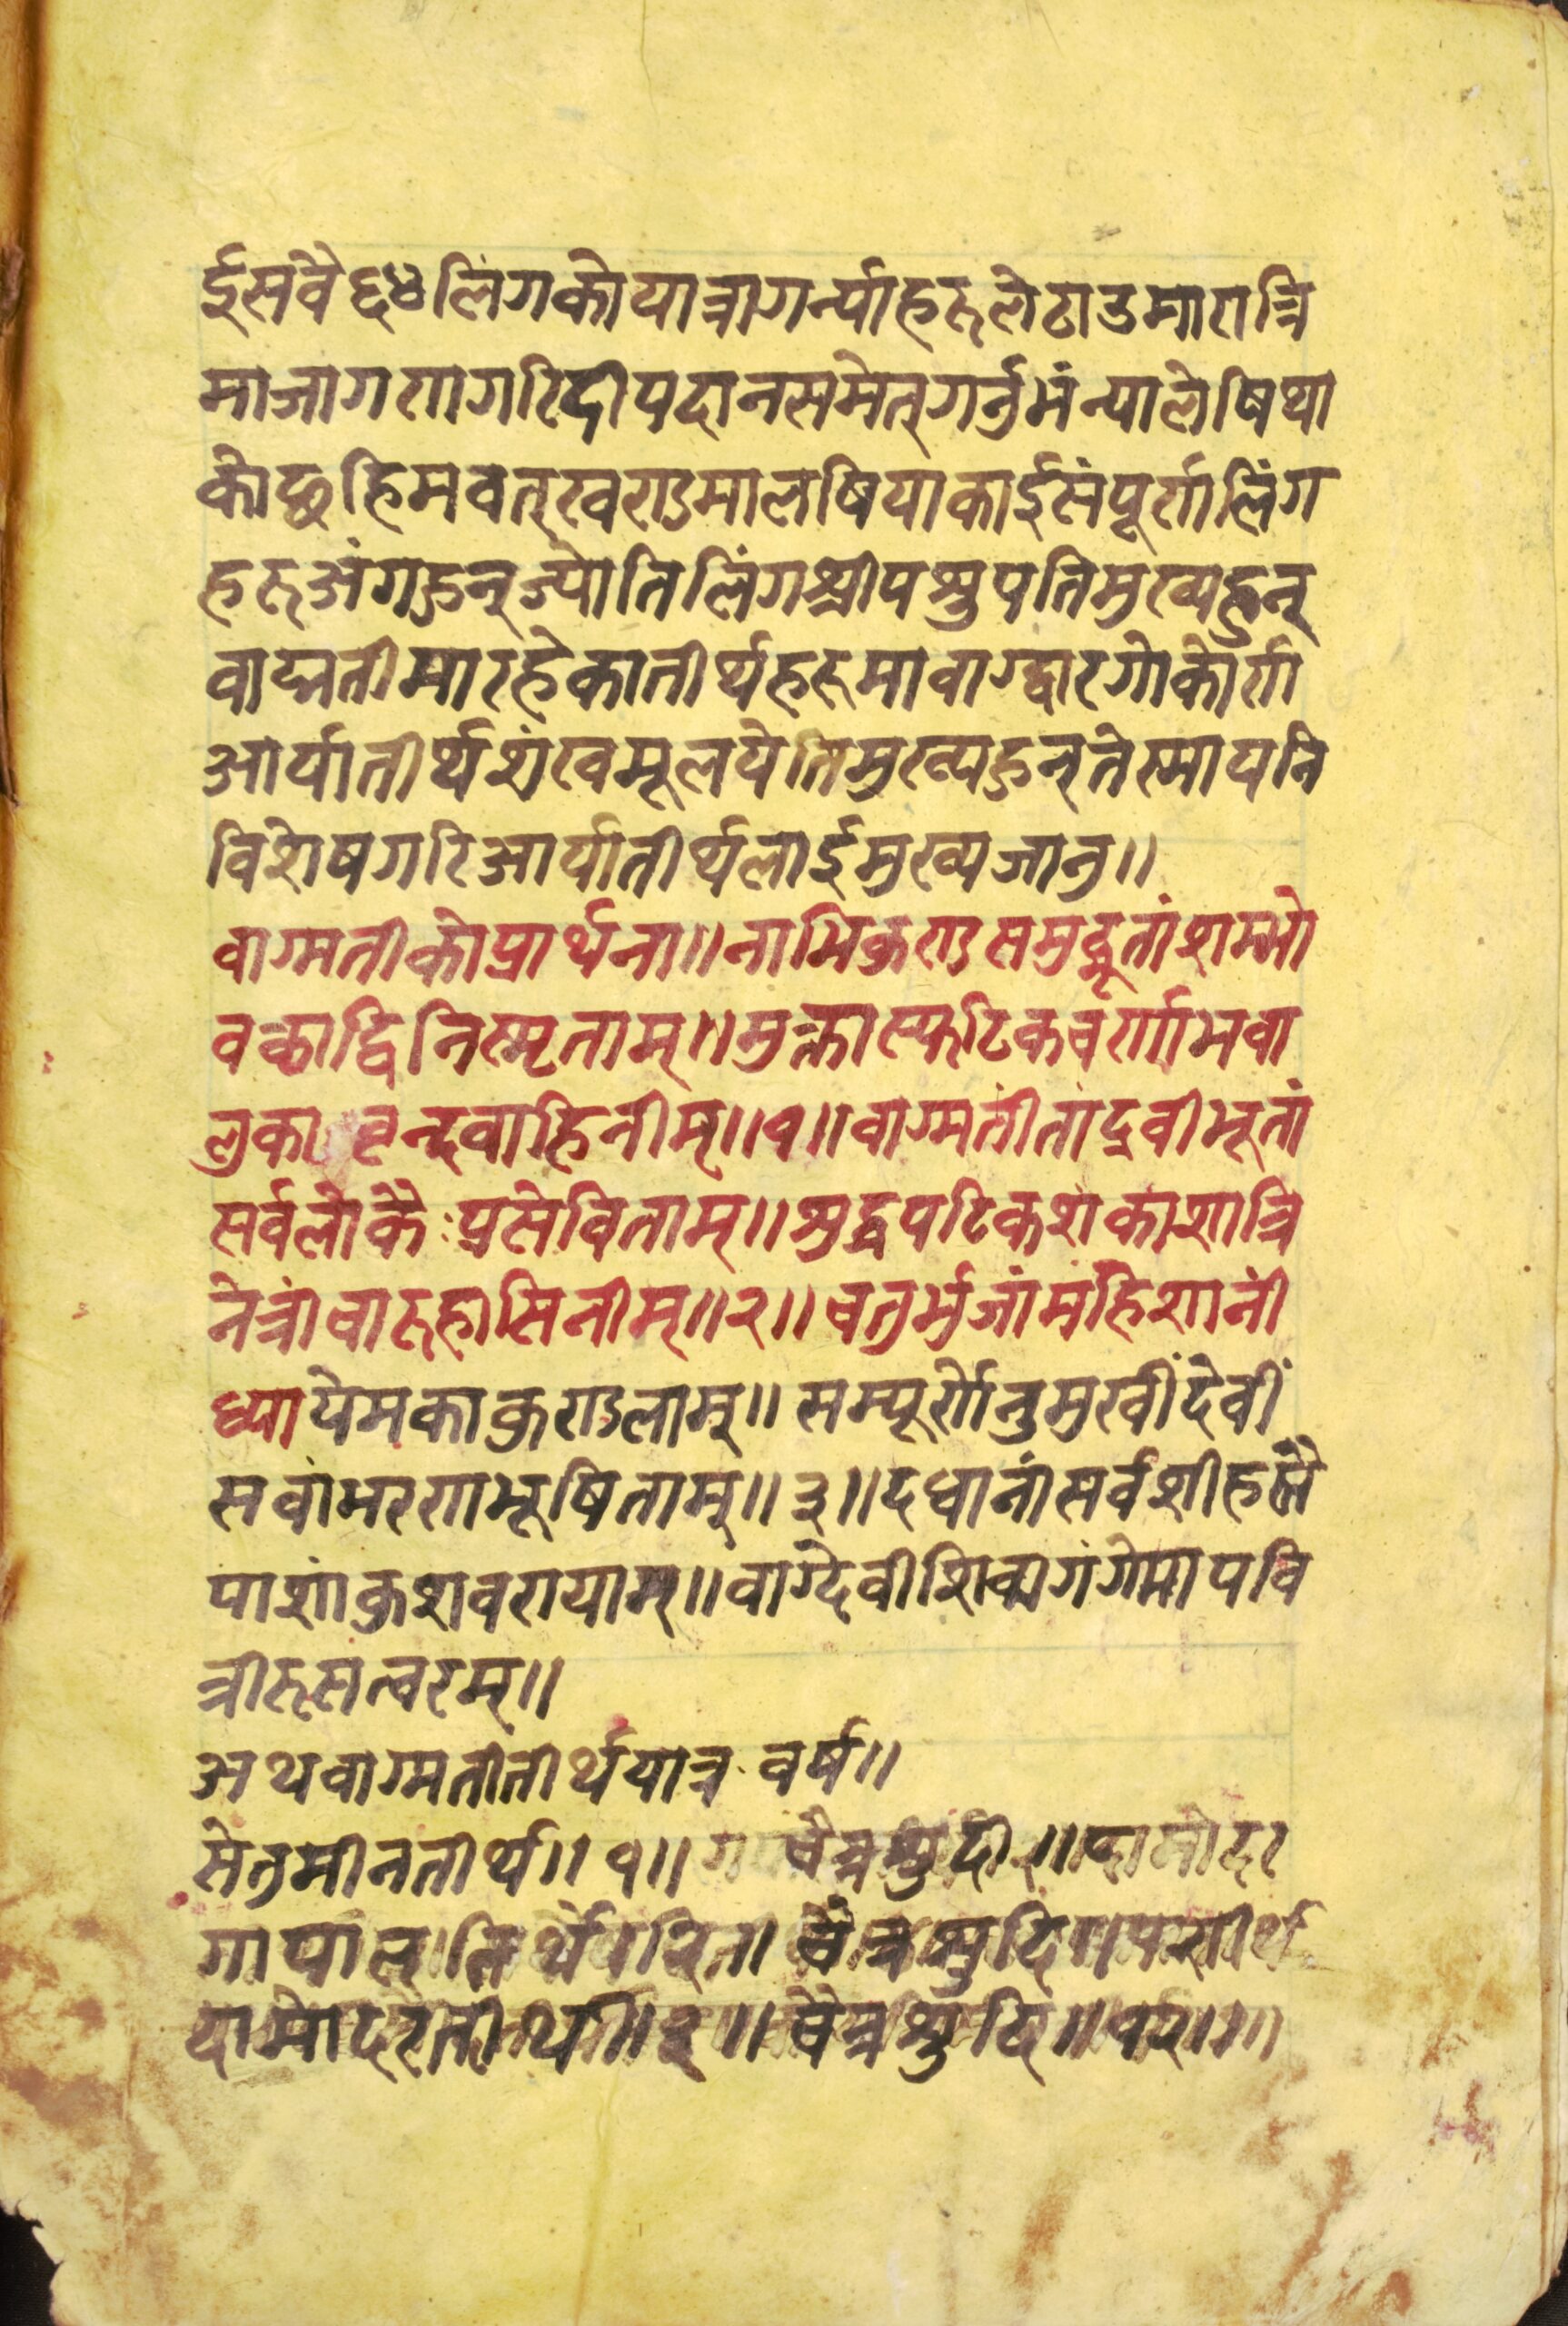 ईसवै६४लिंगकोयात्रागर्न्याहरूलेठाउमारात्रि
माजागरागरिदीपदानसमेत्गर्नुभंन्यालेषिथा
कोछहिमवत्खराडमालषियाकाईसंपूर्णलिंग
हरूअंगहुन्ज्योतिलिंगश्रीपशुपतिमुख्यहुन्
वाग्मतीमारहेकातीर्थहरूमावाग्द्वारगोकर्ण
आर्यातीर्थशंखमूलयेतिमुख्यहुन्तेस्मायनि
विशेषगरिआर्यातीर्थलाईमुख्यजानु॥
वाग्मतीकोप्रार्थना॥नाभिकुराडसमुद्भूतांशम्भो
वक्राद्विनिस्मृताम्॥मुक्तास्फटिकवर्णाभवा
लुका वृन्दवाहिनीम्॥१॥वाग्मतीतांद्रवीभूतां
सर्वलोकैःप्रसेविताम्॥शुद्धपटिकशंकाशांत्रि
नेत्रांचारूहासिनीम्॥२॥चतुर्भुजांमहिशानीं
ध्यायेमकाकुराडलाम्॥सम्पूर्णेनुमुखींदेवीं
सर्वाभरणभूषिताम्॥३॥दधानांसर्वशीहस्तै
पाशांकुशवरायाम्॥वाग्देवीशिवागंगेमापवि
त्रीरूसत्वरम्॥
अथवाग्मतीतीर्थयात्र वर्ष॥
सेतुमीनतीर्थ॥१॥ चैत्रशुदी
गोपालतिर्थ चैत्रशुदि॥
दामोदरतीर्थ॥३॥चैत्रशुदि॥१२॥